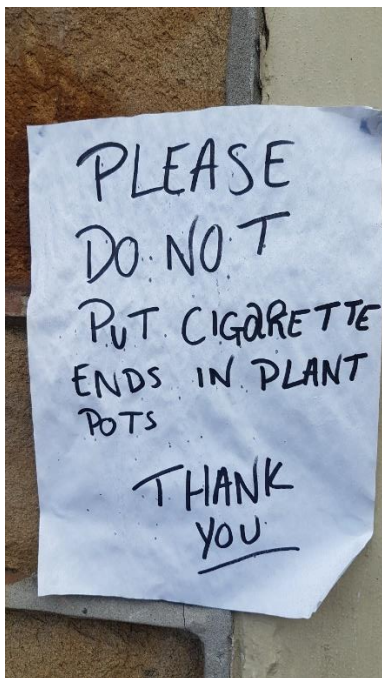 PLEASE
DO NOT
PUT CIGARETTE
ENDS IN PLANT
POTS
THANK
YOU